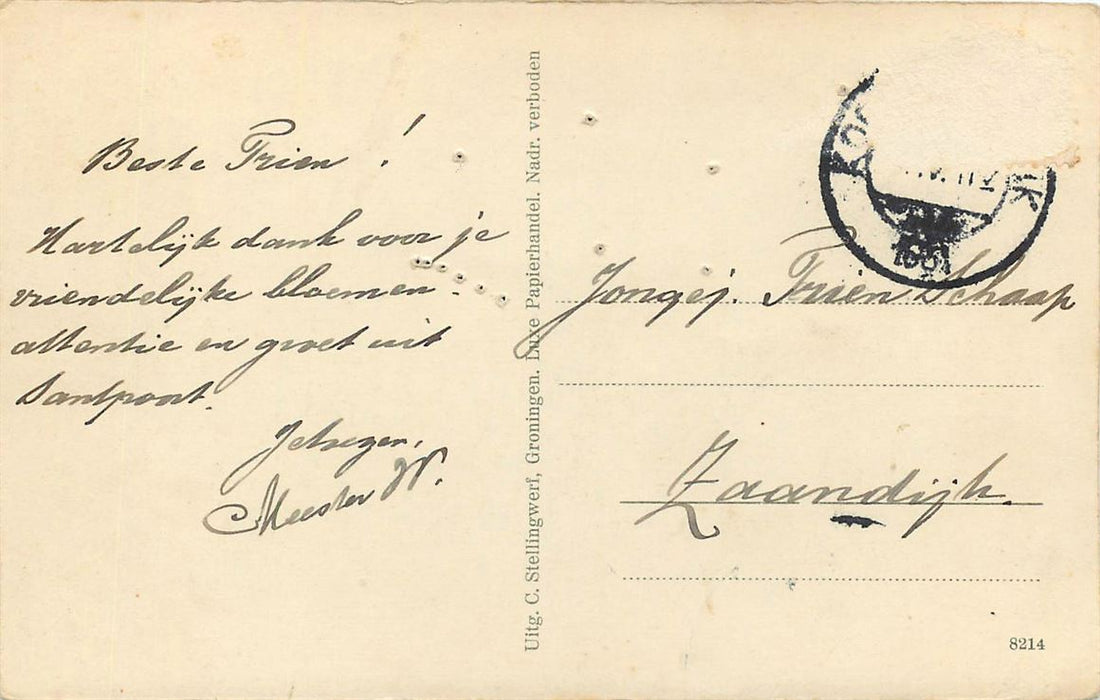 Beste Trien !
Hartelijk dank voor je
vriendelijke bloemen-
attentie en groet uit
Santpoort.
Meester W.
Uitg. C. Stellingwerf, Groningen. Luxe Papierhandel. Nadr. verboden
Jongej. Trien Schaap
Zaandijk.
8214